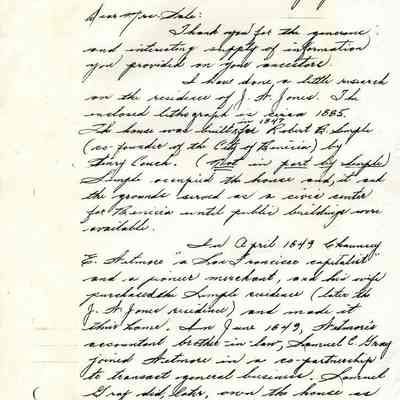 Dear Mrs. Dale:
Thank you for the generous
and interesting supply of information
you provided on your ancestors.
I have done a little research
on the residence of J. A. Jones. The
enclosed lithograph is circa 1885.
The house was built in 1847 for Robert B. Semple
(co-founder of the City of Benicia) by
Henry Couch. (Not in part by Semple)
Semple occupied the house and it and
the grounds served as a civic center
for Benicia until public buildings were
available.
In April 1849 Chauncey
E. Wetmore "a San Francisco capitalist"
and a pioneer merchant, and his wife
purchased the Semple residence (later the
J. A. Jones residence) and made it
their home. In June 1849, Wetmore's
accountant brother-in-law, Samuel C. Gray
joined Wetmore in a co-partnership
to transact general business. Samuel
Gray did, later, own the house as